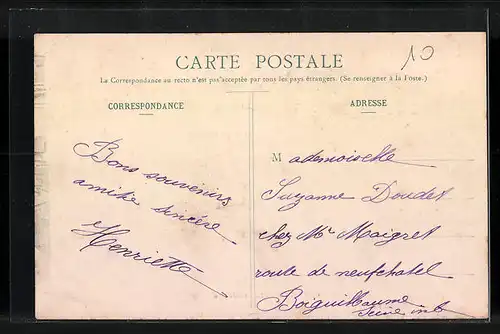 CARTE POSTALE
10
La Correspondance au recto n'est pas acceptée par tous les pays étrangers. (Se renseigner à la Poste.)
CORRESPONDANCE
Bons souvenirs
amitié sincère
Henriette
ADRESSE
Mademoiselle
Suzanne Doudet
chez Mr Maigret
route de neufchatel
Boiguillaume
Seine inf